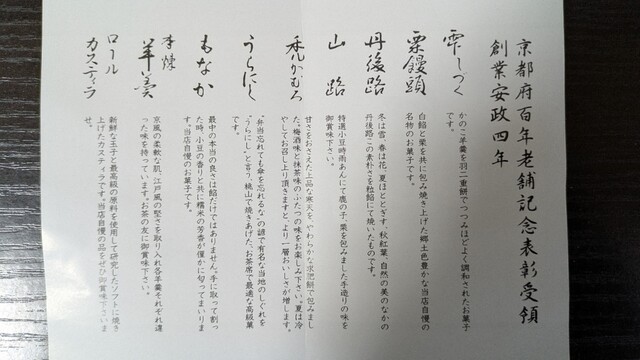 京都府百年老舗記念表彰受領
創業安政四年
雫しづく
かのこ羊羹を羽二重餅でつつみほどよく調和されたお菓子
です。
栗饅頭
白餡と栗を共に包み焼き上げた郷土色豊かな当店自慢の
名物のお菓子です。
丹後路
冬は雪、春は花、夏ほととぎす、秋紅葉、自然の美のなかの
丹後路。この素朴さを粒餡にて焼いたものです。
山路
特選小豆時雨あんにて鹿の子、栗を包みました手造りの味を
御賞味下さい。
禿かむろ
甘さをおさえた上品な寒天を、やわらかな求肥餅で包みまし
た。梅酒味と抹茶味のふたつの味をお楽しみ下さい。夏は冷
やしてお召し上り頂きますと、より一層おいしさが増します。
うらにし
“弁当忘れても傘を忘れるな”の諺で有名な当地のしぐれを
“うらにし”と言う。桃山で焼きあげた、お茶席で最適な高級菓
です。
もなか
最中の本当の良さは餡だけではありません。手に取って割っ
た時、小豆の香りと共に糯米の芳香が僅かに匂ってまいりま
す。当店自慢のお菓子です。
本煉
羊羹
京風の柔軟な肌、江戸風の堅さを取り入れ各羊羹それぞれ違
った味を持っています。お茶の友に御賞味下さい。
ロール
カスティラ
新鮮な玉子と最高級の原料を使用して研究したソフトに焼き
上げたカスティラです。当店自慢の品をぜひ御賞味下さいま
せ。